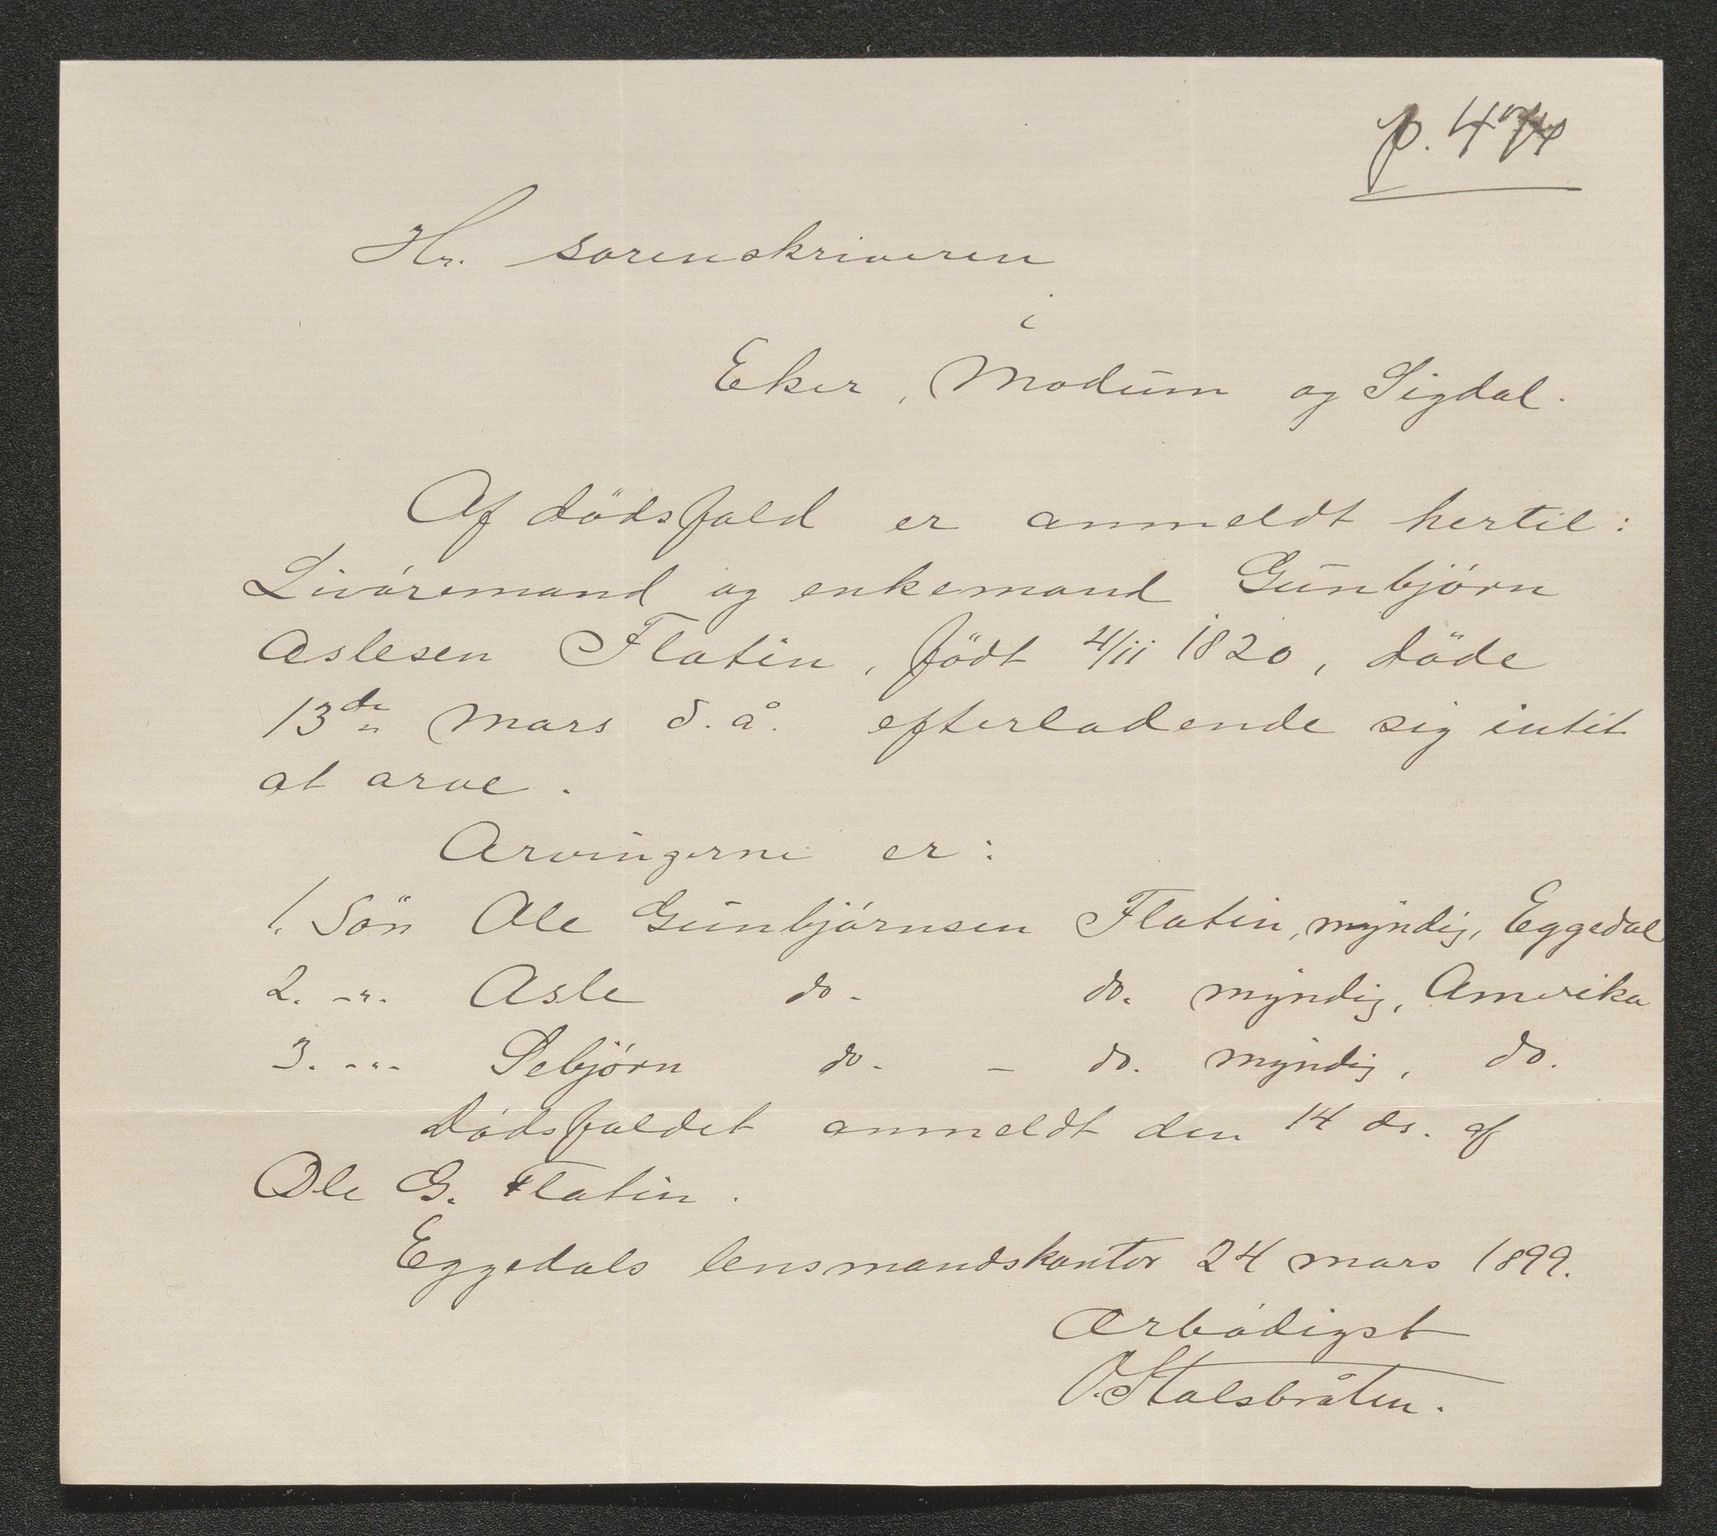 p. 474
Hr. sorenskriveren
i
Eker, Modum og Sigdal.
Af dödsfald er anmeldt hertil:
Livöremand og enkemand Gunbjörn
Aslesen Flatin, födt 4/11 1820, döde
13de mars d. å. efterladende sig intet
at arve.
Arvingerne er:
1. Sön Ole Gunbjörnsen Flatin, myndig, Eggedal
2. -"- Asle do - do. myndig, Amerika
3. -"- Sebjörn do. - do. myndig, do.
Dödsfaldet anmeldt den 14 ds. af
Ole G. Flatin.
Eggedals lensmandskontor 24 mars 1899.
Ærbödigst
O. Stalsbråten.